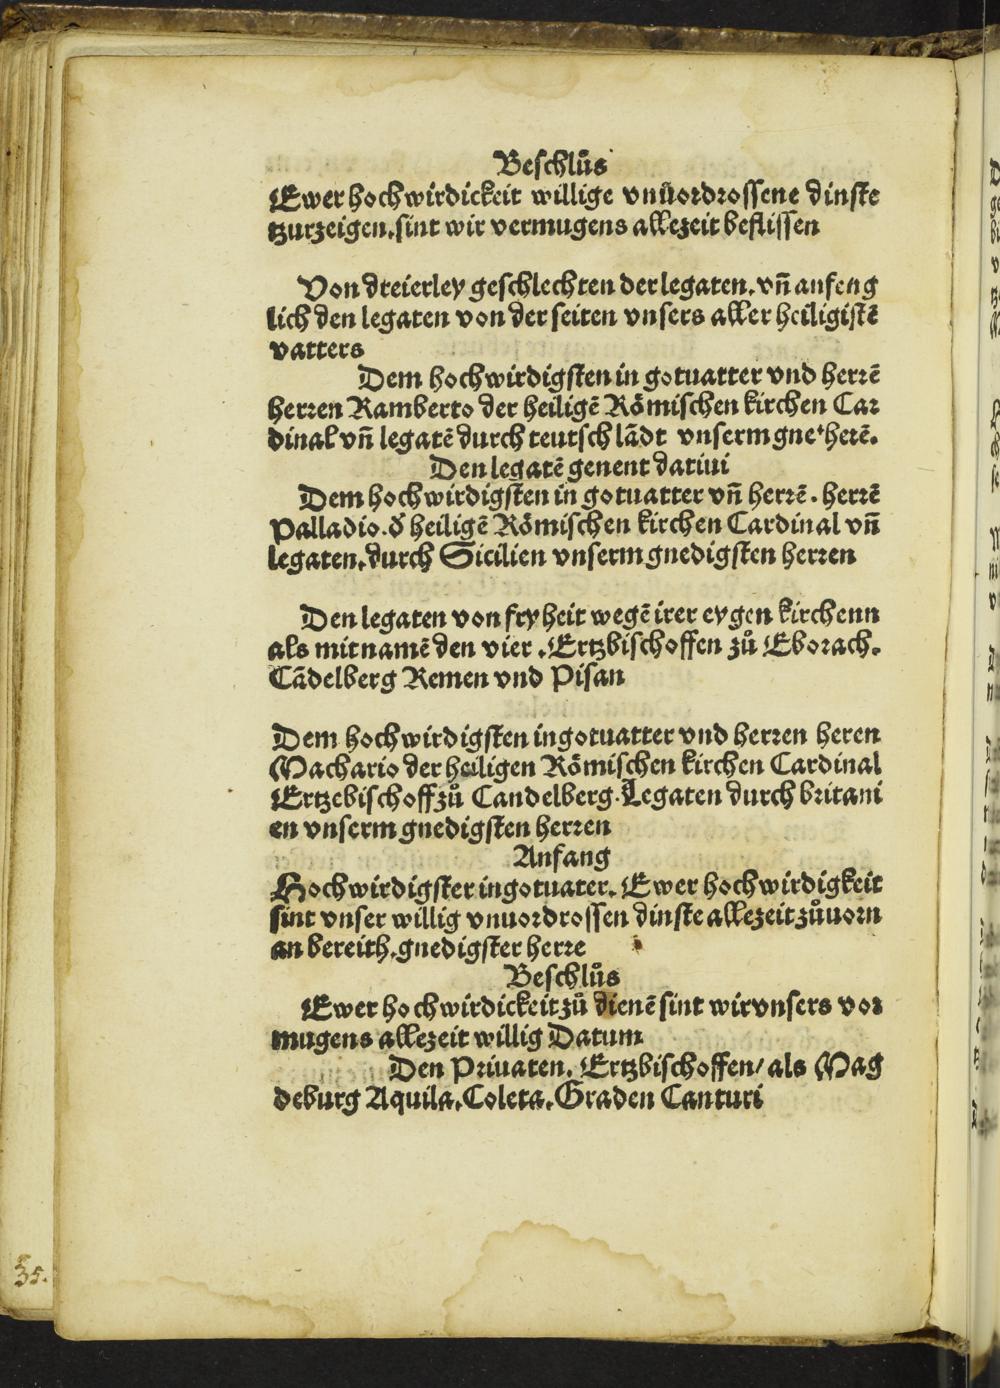 Beschlůs
Ewer hochwirdickeit willige vnuordrossene dinste
tzurzeigen. sint wir vermugens allezeit beflissen
Von dreierley geschlechten der legaten. vn̄ anfeng
lich den legaten von der seiten vnsers aller heiligistē
vatters
Dem hochwirdigsten in gotuatter vnd herrē
herren Ramberto der heiligē Römischen kirchen Car
dinal vn̄ legatē durch teutsch lādt vnserm gne' herē.
Den legatē genent datiui
Dem hochwirdigsten in gotuatter vn̄ herrē. herrē
Palladio. d̕ heiligē Römischen kirchen Cardinal vn̄
legaten. durch Sicilien vnserm gnedigsten herren
Den legaten von fryheit wegē irer eygen kirchenn
als mitnamē den vier. Ertzbischoffen zů Eborach.
Cādelberg Remen vnd Pisan
Dem hochwirdigsten ingotuatter vnd herren heren
Machario der heiligen Römischen kirchen Cardinal
Ertzebischoff zů Candelberg. Legaten durch britani
en vnserm gnedigsten herren
Anfang
Hochwirdigster ingotuater. Ewer hochwirdigkeit
sint vnser willig vnuordrossen dinste allezeit zůuorn
an bereith. gnedigster herre
Beschlůs
Ewer hochwirdickeit zů dienē sint wir vnsers vor
mugens allezeit willig Datum
Den Priuaten. Ertzbischoffen/ als Mag
deburg Aquila. Coleta. Graden Canturi
35.